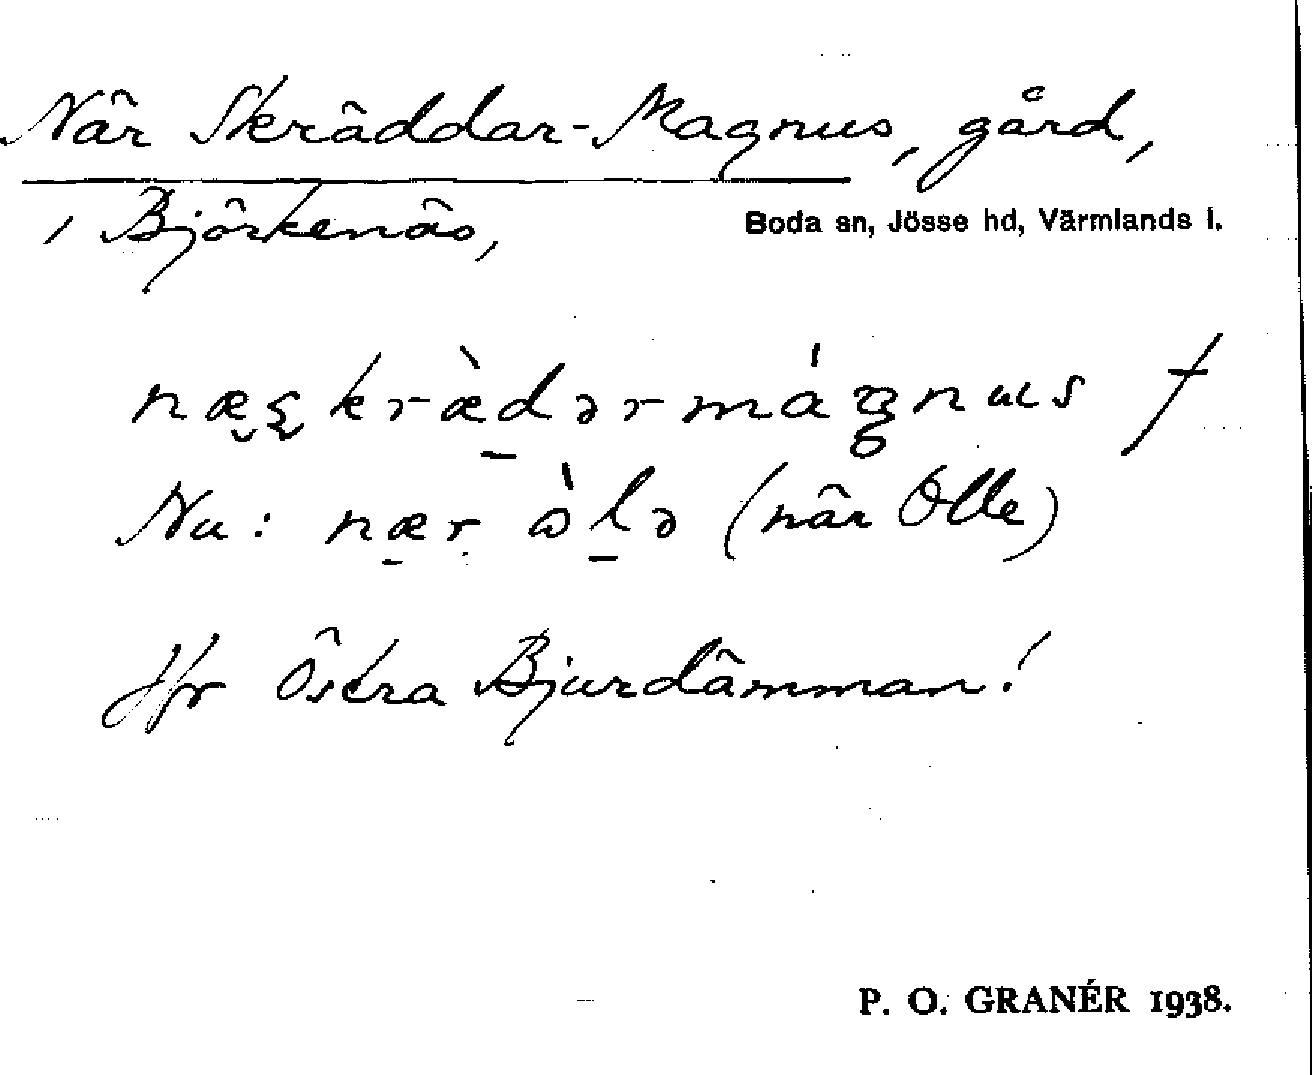 När Skräddar-Magnus, gård,
i Björkenäs,
Boda sn, Jösse hd, Värmlands l.
næʂkræ̀dərmágnus †
Nu: nær òlə (när Olle)
Jfr Östra Bjurdämman!
P. O. GRANÉR 1938.